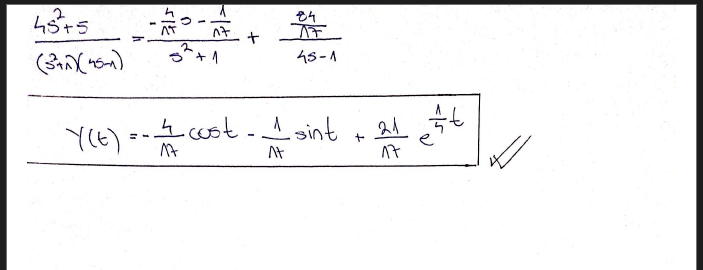 (4s²+5)/((s²+1)(4s-1)) = (-4/17 s - 1/17)/(s²+1) + (84/17)/(4s-1)
Y(t) = -4/17 cost - 1/17 sint + 21/17 e^(1/4 t)